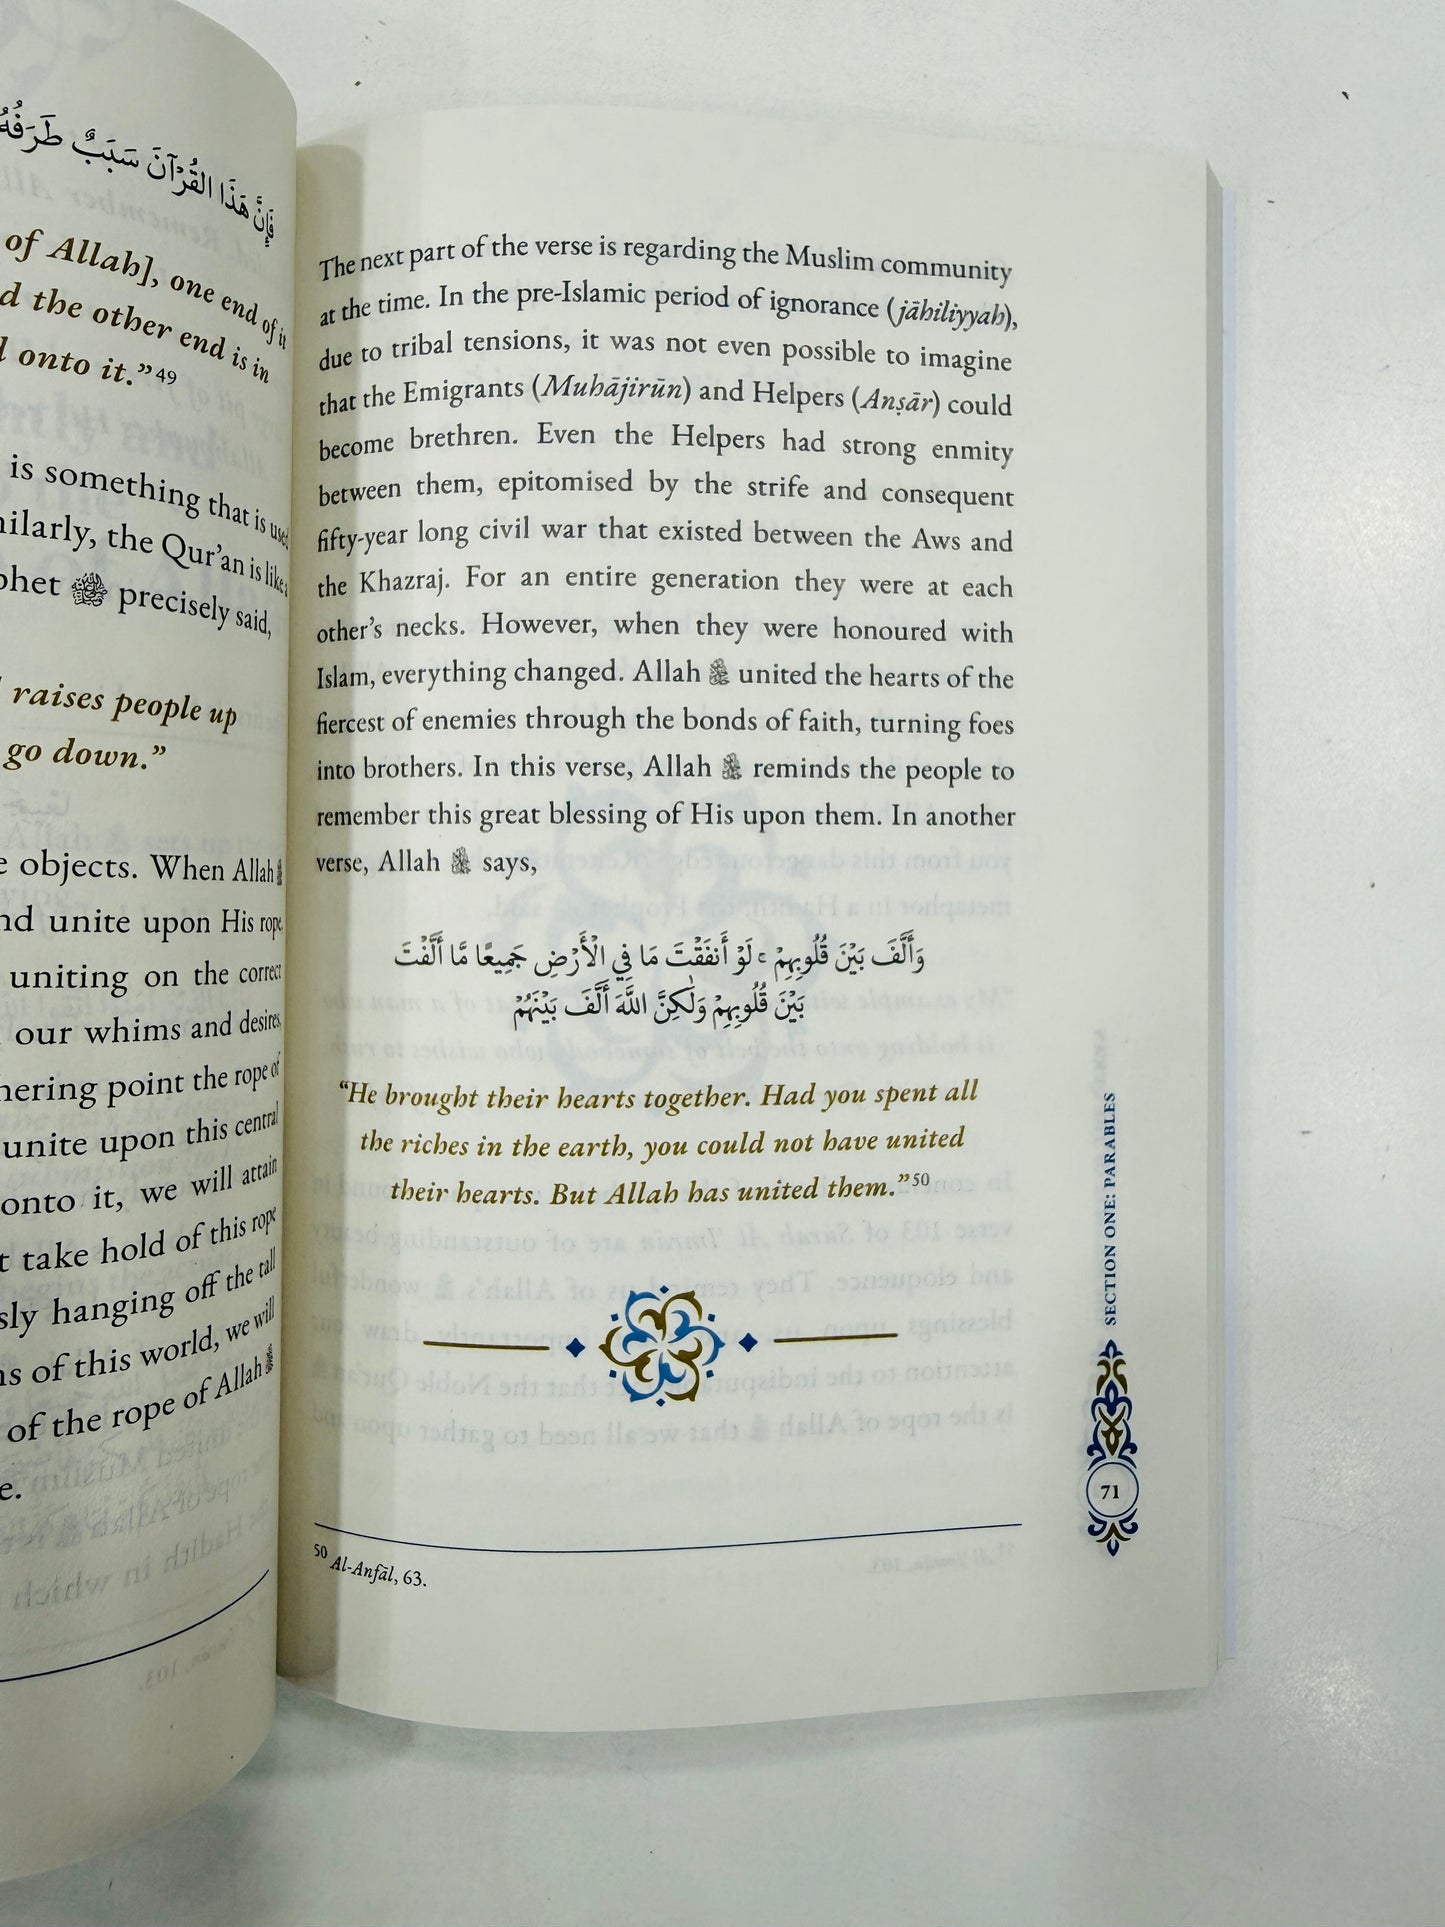 فَإِنَّ هَذَا الْقُرْآنَ سَبَبٌ طَرَفُهُ
of Allah], one end of it
the other end is in
onto it.”49
is something that is used
the Qur’an is like a
ﷺ precisely said,
raises people up
go down.”
objects. When Allah ﷻ
unite upon His rope,
uniting on the correct
our whims and desires,
point the rope of
unite upon this central
onto it, we will attain
take hold of this rope
hanging off the tall
of this world, we will
of the rope of Allah ﷻ
The next part of the verse is regarding the Muslim community
at the time. In the pre-Islamic period of ignorance (jāhiliyyah),
due to tribal tensions, it was not even possible to imagine
that the Emigrants (Muhājirūn) and Helpers (Anṣār) could
become brethren. Even the Helpers had strong enmity
between them, epitomised by the strife and consequent
fifty-year long civil war that existed between the Aws and
the Khazraj. For an entire generation they were at each
other’s necks. However, when they were honoured with
Islam, everything changed. Allah ﷻ united the hearts of the
fiercest of enemies through the bonds of faith, turning foes
into brothers. In this verse, Allah ﷻ reminds the people to
remember this great blessing of His upon them. In another
verse, Allah ﷻ says,
وَأَلَّفَ بَيْنَ قُلُوبِهِمْ ۚ لَوْ أَنفَقْتَ مَا فِي الْأَرْضِ جَمِيعًا مَّا أَلَّفْتَ
بَيْنَ قُلُوبِهِمْ وَلَٰكِنَّ اللَّهَ أَلَّفَ بَيْنَهُمْ
“He brought their hearts together. Had you spent all
the riches in the earth, you could not have united
their hearts. But Allah has united them.”50
50 Al-Anfāl, 63.
SECTION ONE: PARABLES
71